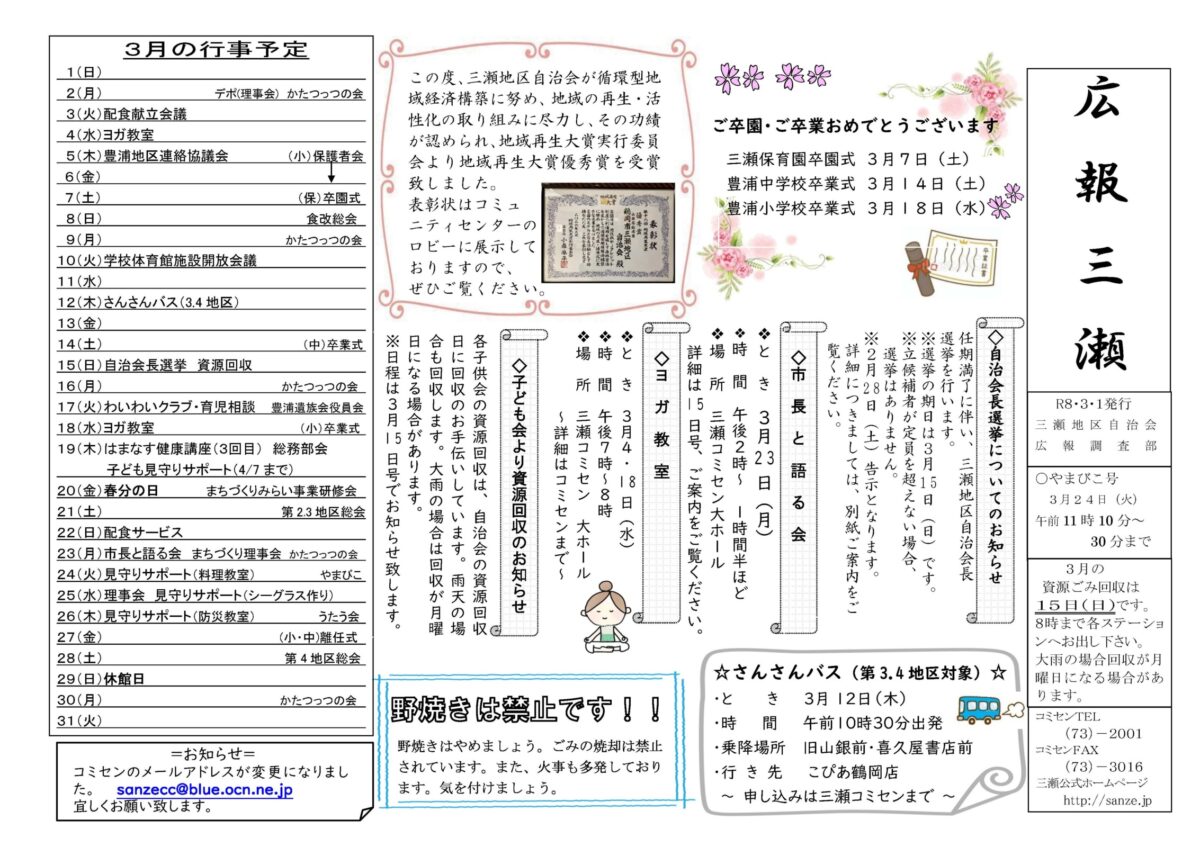 広報三瀬
R8・3・1発行
三瀬地区自治会
広報調査部
〇やまびこ号
3月24日（火）
午前11時10分～
30分まで
3月の
資源ごみ回収は
15日(日)です。
8時まで各ステーショ
ンへお出し下さい。
大雨の場合回収が月
曜日になる場合があ
ります。
コミセンTEL
(73)－2001
コミセンFAX
(73)－3016
三瀬公式ホームページ
http://sanze.jp
ご卒園・ご卒業おめでとうございます
三瀬保育園卒園式 3月7日（土）
豊浦中学校卒業式 3月14日（土）
豊浦小学校卒業式 3月18日（水）
卒業証書
この度、三瀬地区自治会が循環型地
域経済構築に努め、地域の再生・活
性化の取り組みに尽力し、その功績
が認められ、地域再生大賞実行委員
会より地域再生大賞優秀賞を受賞
致しました。
表彰状はコミュ
ニティセンターの
ロビーに展示して
おりますので、
ぜひご覧ください。
表彰状
鶴岡市三瀬地区
自治会 殿
◇自治会長選挙についてのお知らせ
任期満了に伴い、三瀬地区自治会長
選挙を行います。
※選挙の期日は3月15日（日）です。
※立候補者が定員を超えない場合、
選挙はありません。
※2月28日（土）告示となります。
詳細につきましては、別紙ご案内をご
覧ください。
◇市長と語る会
❖とき 3月23日（月）
❖時間 午後2時～1時間半ほど
❖場所 三瀬コミセン大ホール
詳細は15日号、ご案内をご覧ください。
◇ヨガ教室
❖とき 3月4・18日（水）
❖時間 午後7時～8時
❖場所 三瀬コミセン 大ホール
～詳細はコミセンまで～
◇子ども会より資源回収のお知らせ
各子供会の資源回収は、自治会の資源回収
日に回収のお手伝いしています。雨天の場
合も回収します。大雨の場合は回収が月曜
日になる場合があります。
※日程は3月15日号でお知らせ致します。
3月の行事予定
1(日)
2(月) デポ(理事会) かたつっつの会
3(火)配食献立会議
4(水)ヨガ教室
5(木)豊浦地区連絡協議会 (小)保護者会
6(金)
7(土) (保)卒園式
8(日) 食改総会
9(月) かたつっつの会
10(火)学校体育館施設開放会議
11(水)
12(木)さんさんバス(3.4地区)
13(金)
14(土) (中)卒業式
15(日)自治会長選挙 資源回収
16(月) かたつっつの会
17(火)わいわいクラブ・育児相談 豊浦遺族会役員会
18(水)ヨガ教室 (小)卒業式
19(木)はまなす健康講座(3回目) 総務部会
子ども見守りサポート(4/7まで)
20(金)春分の日 まちづくりみらい事業研修会
21(土) 第2.3地区総会
22(日)配食サービス
23(月)市長と語る会 まちづくり理事会 かたつっつの会
24(火)見守りサポート(料理教室) やまびこ
25(水)理事会 見守りサポート(シーグラス作り)
26(木)見守りサポート(防災教室) うたう会
27(金) (小・中)離任式
28(土) 第4地区総会
29(日)休館日
30(月) かたつっつの会
31(火)
＝お知らせ＝
コミセンのメールアドレスが変更になりまし
た。 sanzecc@blue.ocn.ne.jp
宜しくお願い致します。
野焼きは禁止です！！
野焼きはやめましょう。ごみの焼却は禁止
されています。また、火事も多発しており
ます。気を付けましょう。
☆さんさんバス（第3.4地区対象）☆
・とき 3月12日(木)
・時間 午前10時30分出発
・乗降場所 旧山銀前・喜久屋書店前
・行き先 こぴあ鶴岡店
～ 申し込みは三瀬コミセンまで ～